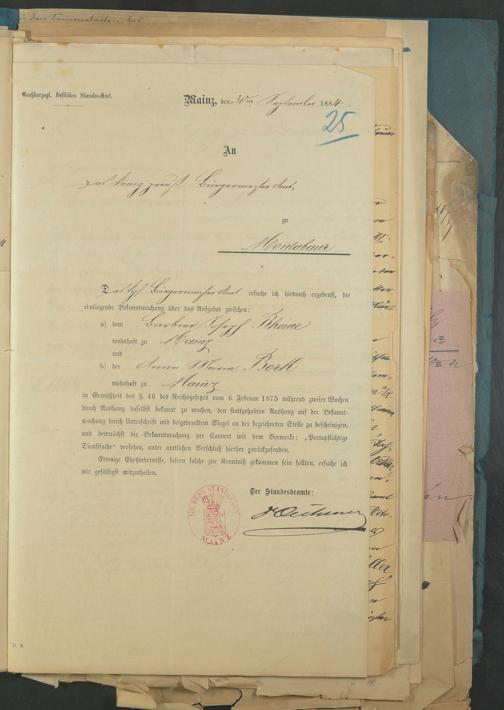 Großherzogl. Hessisches Standes-Amt.
Mainz, den 30ten September 1884.
25
An
Königl. preuß. Bürgermeister Amt,
zu
Montabaur
Bürgermeister Amt ersuche ich hiedurch ergebenst, die
einliegende Bekanntmachung über das Aufgebot zwischen:
a) dem Barbier Joseph Rheine
wohnhaft zu Mainz
und
b) der Anna Maria Bork
wohnhaft zu Mainz
in Gemäßheit des §. 46 des Reichsgesetzes vom 6. Februar 1875 während zweier Wochen
durch Aushang daselbst bekannt zu machen, den stattgehabten Aushang auf der Bekannt-
machung durch Unterschrift und beigedrucktem Siegel an der bezeichneten Stelle zu bescheinigen,
und demnächst die Bekanntmachung per Couvert mit dem Vermerke: „Portopflichtige
Dienstsache“ versehen, unter amtlichem Verschluß hierher zurückzusenden.
Etwaige Ehehindernisse, sofern solche zur Kenntniß gekommen sein sollten, ersuche ich
mir gefälligst mitzutheilen.
Der Standesbeamte:
MAINZ